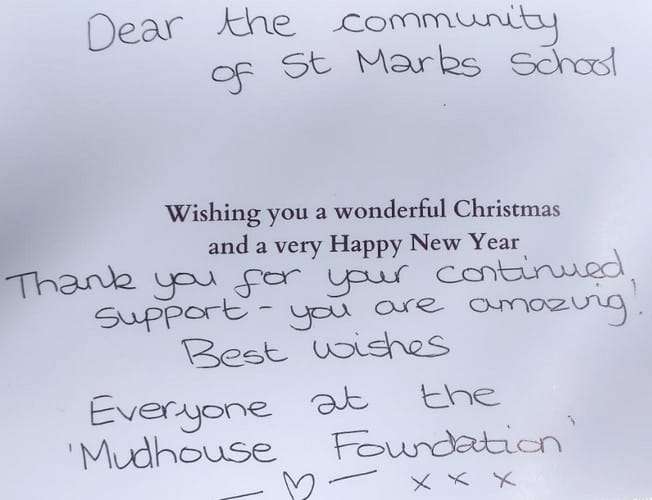 Dear the community
of St Marks School
Wishing you a wonderful Christmas
and a very Happy New Year
Thank you for your continued
support - you are amazing!
Best wishes
Everyone at the
'Mudhouse Foundation'
— ♡ — x x x